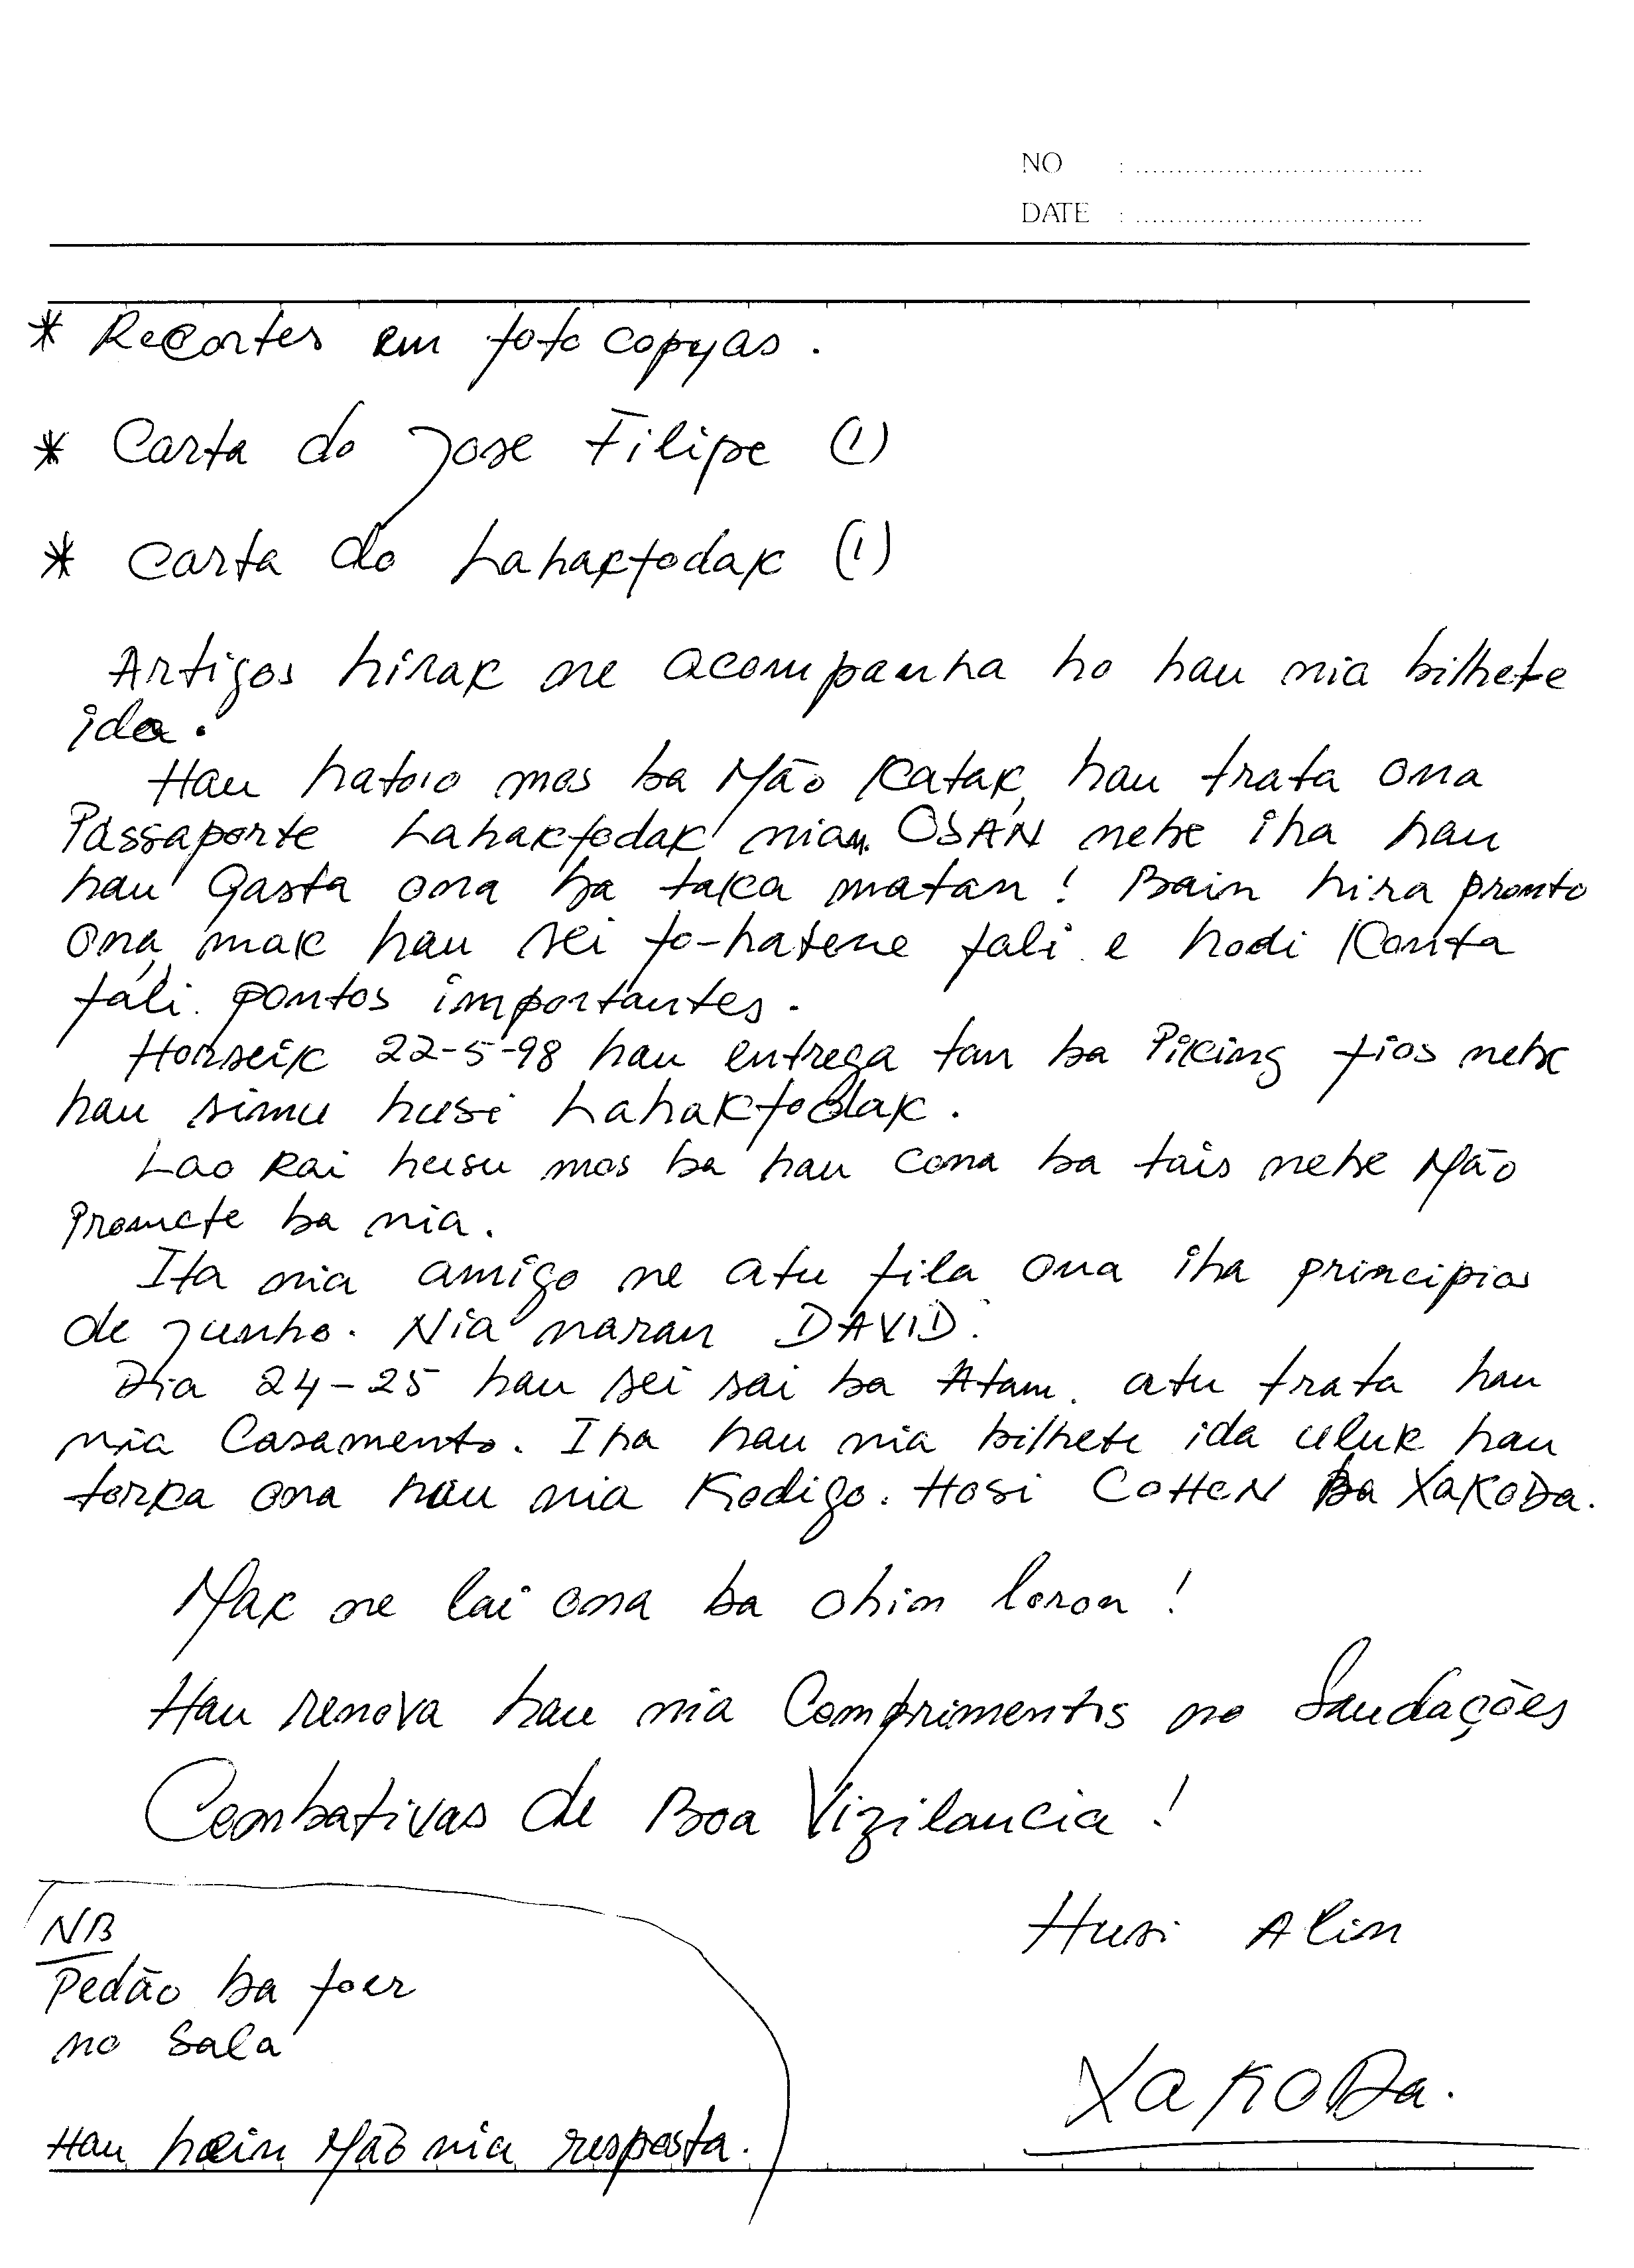 NO : ....................................
DATE : ....................................
* Recortes em foto copyas .
* Carta do Jose Filipe (1)
* Carta do Lahaktodak (1)
Artigos hirak ne acompanha ho hau nia bilhete
ida.
Hau hatoio mos ba Mão Katak, hau trata ona
Passaporte Lahaktodak nian. OSAN nebe iha hau
hau Gasta ona ba taka matan ! Bain hira pronto
Ona, mak hau sei fo-hatene fali e hodi Konta
fali. pontos importantes.
Horseik 22-5-98 hau entrega tan ba Piking fios nebe
hau simu husi Lahaktodak.
Lao Rai husu mos ba hau cona ba tais nebe Mão
Promete ba nia.
Ita nia amigo ne atu fila ona iha principios
de Junho. Nia naran DAVID.
Dia 24-25 hau sei sai ba Atam. atu trata hau
nia Casamento. Iha hau nia bilhete ida uluk hau
torka ona hau nia Kodigo. Hosi COHEN Ba XAKODA.
Mak ne lai ona ba ohin loron !
Hau renova hau nia Comprimentos no Saudações
Combativas de Boa Vizilancia !
NB
Pedão ba foer
no Sala
Hau hein Mão nia resposta.
Husi Alin
XAKODA.